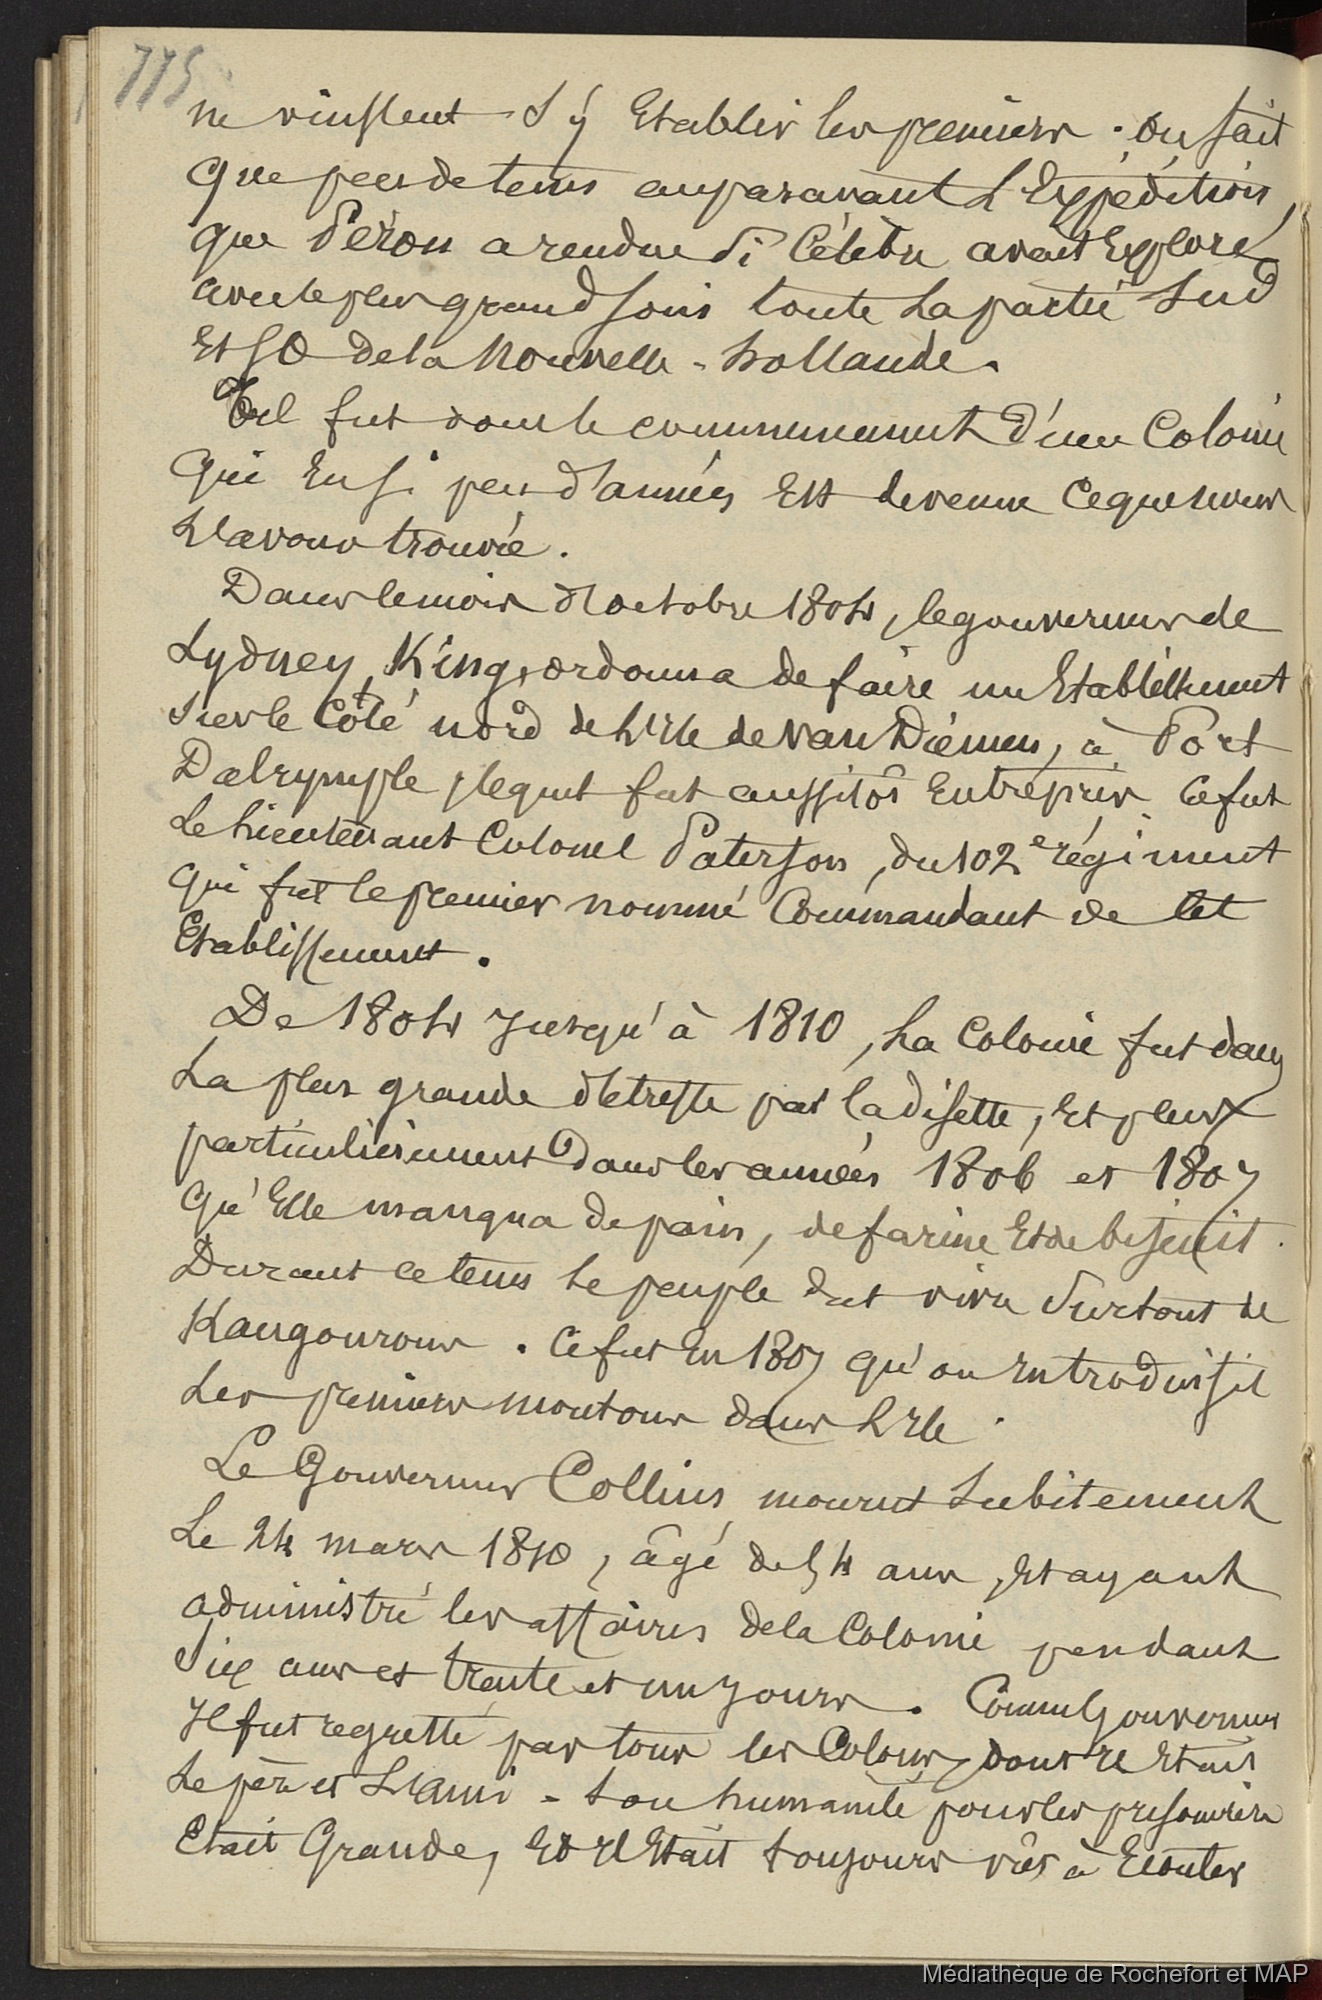 775
ne vinssent s'y Etablir les premiers. on sait
que peu de tems auparavant L'Expédition
que Péron a rendue si Célèbre avait Exploré
avec le plus grand soin toute La partie Sud
Et SO de la Nouvelle-hollande.
Tel fut donc le commencement d'une Colonie
qui En si peu d'années Est devenue ce que nous
L'avons trouvée.
Dans le mois d'octobre 1804, le gouverneur de
Sydney, King, ordonna de faire un Etablissement
sur le Côté nord de L'Ile de Van Diémen, à Port
Dalrymple, lequel fut aussitôt Entrepris. Ce fut
Le Lieutenant Colonel Paterson, du 102e régiment
qui fut le premier nommé Commandant de Cet
Etablissement.
De 1804 Jusqu'à 1810, La Colonie fut dans
La plus grande détresse par la disette, Et plus
particulièrement Dans les années 1806 et 1807
qu'Elle manqua de pain, de farine Et de biscuit.
Durant ce tems Le peuple dut vivre Surtout de
Kangourous. Ce fut En 1807 qu'on Introduisit
Les premiers moutons dans L'Ile.
Le Gouverneur Collins mourut Subitement
Le 24 mars 1810, âgé de 54 ans, Et ayant
administré les affaires De la Colonie pendant
Six ans et trente et un Jours. Comme Gouverneur
Il fut regretté par tous les Colons, dont Il Etait
Le père et L'ami - Son humanité pour les prisonniers
Etait Grande, Et Il Etait toujours prêt à Ecouter
Médiathèque de Rochefort et MAP